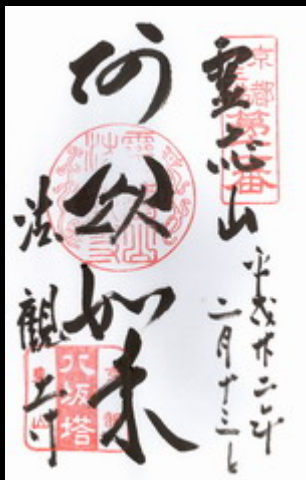 京都
第十一番
霊应山
平成廿二年
二月十三日
阿閦如来
法観寺
八坂塔